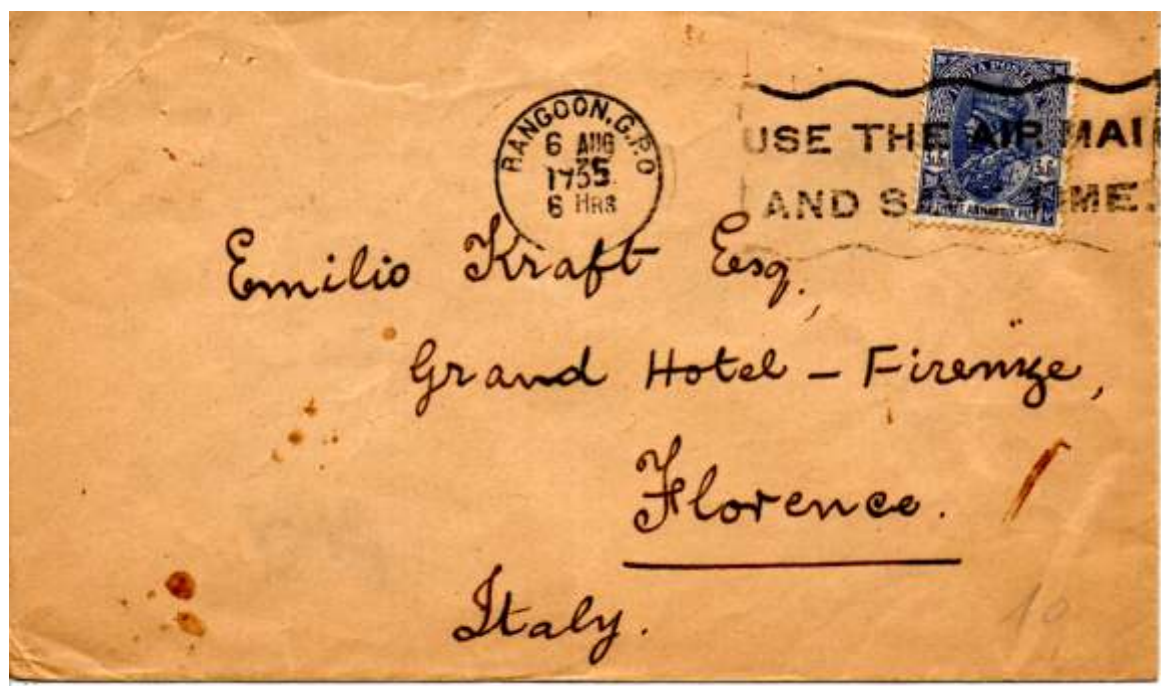 RANGOON. G.P.O
6 AUG
35
1735
6 HRS
INDIA POSTAGE
USE THE AIR MAIL
AND SAVE TIME.
Emilio Kraft Esq.,
Grand Hotel – Firenze,
Florence.
Italy.
10